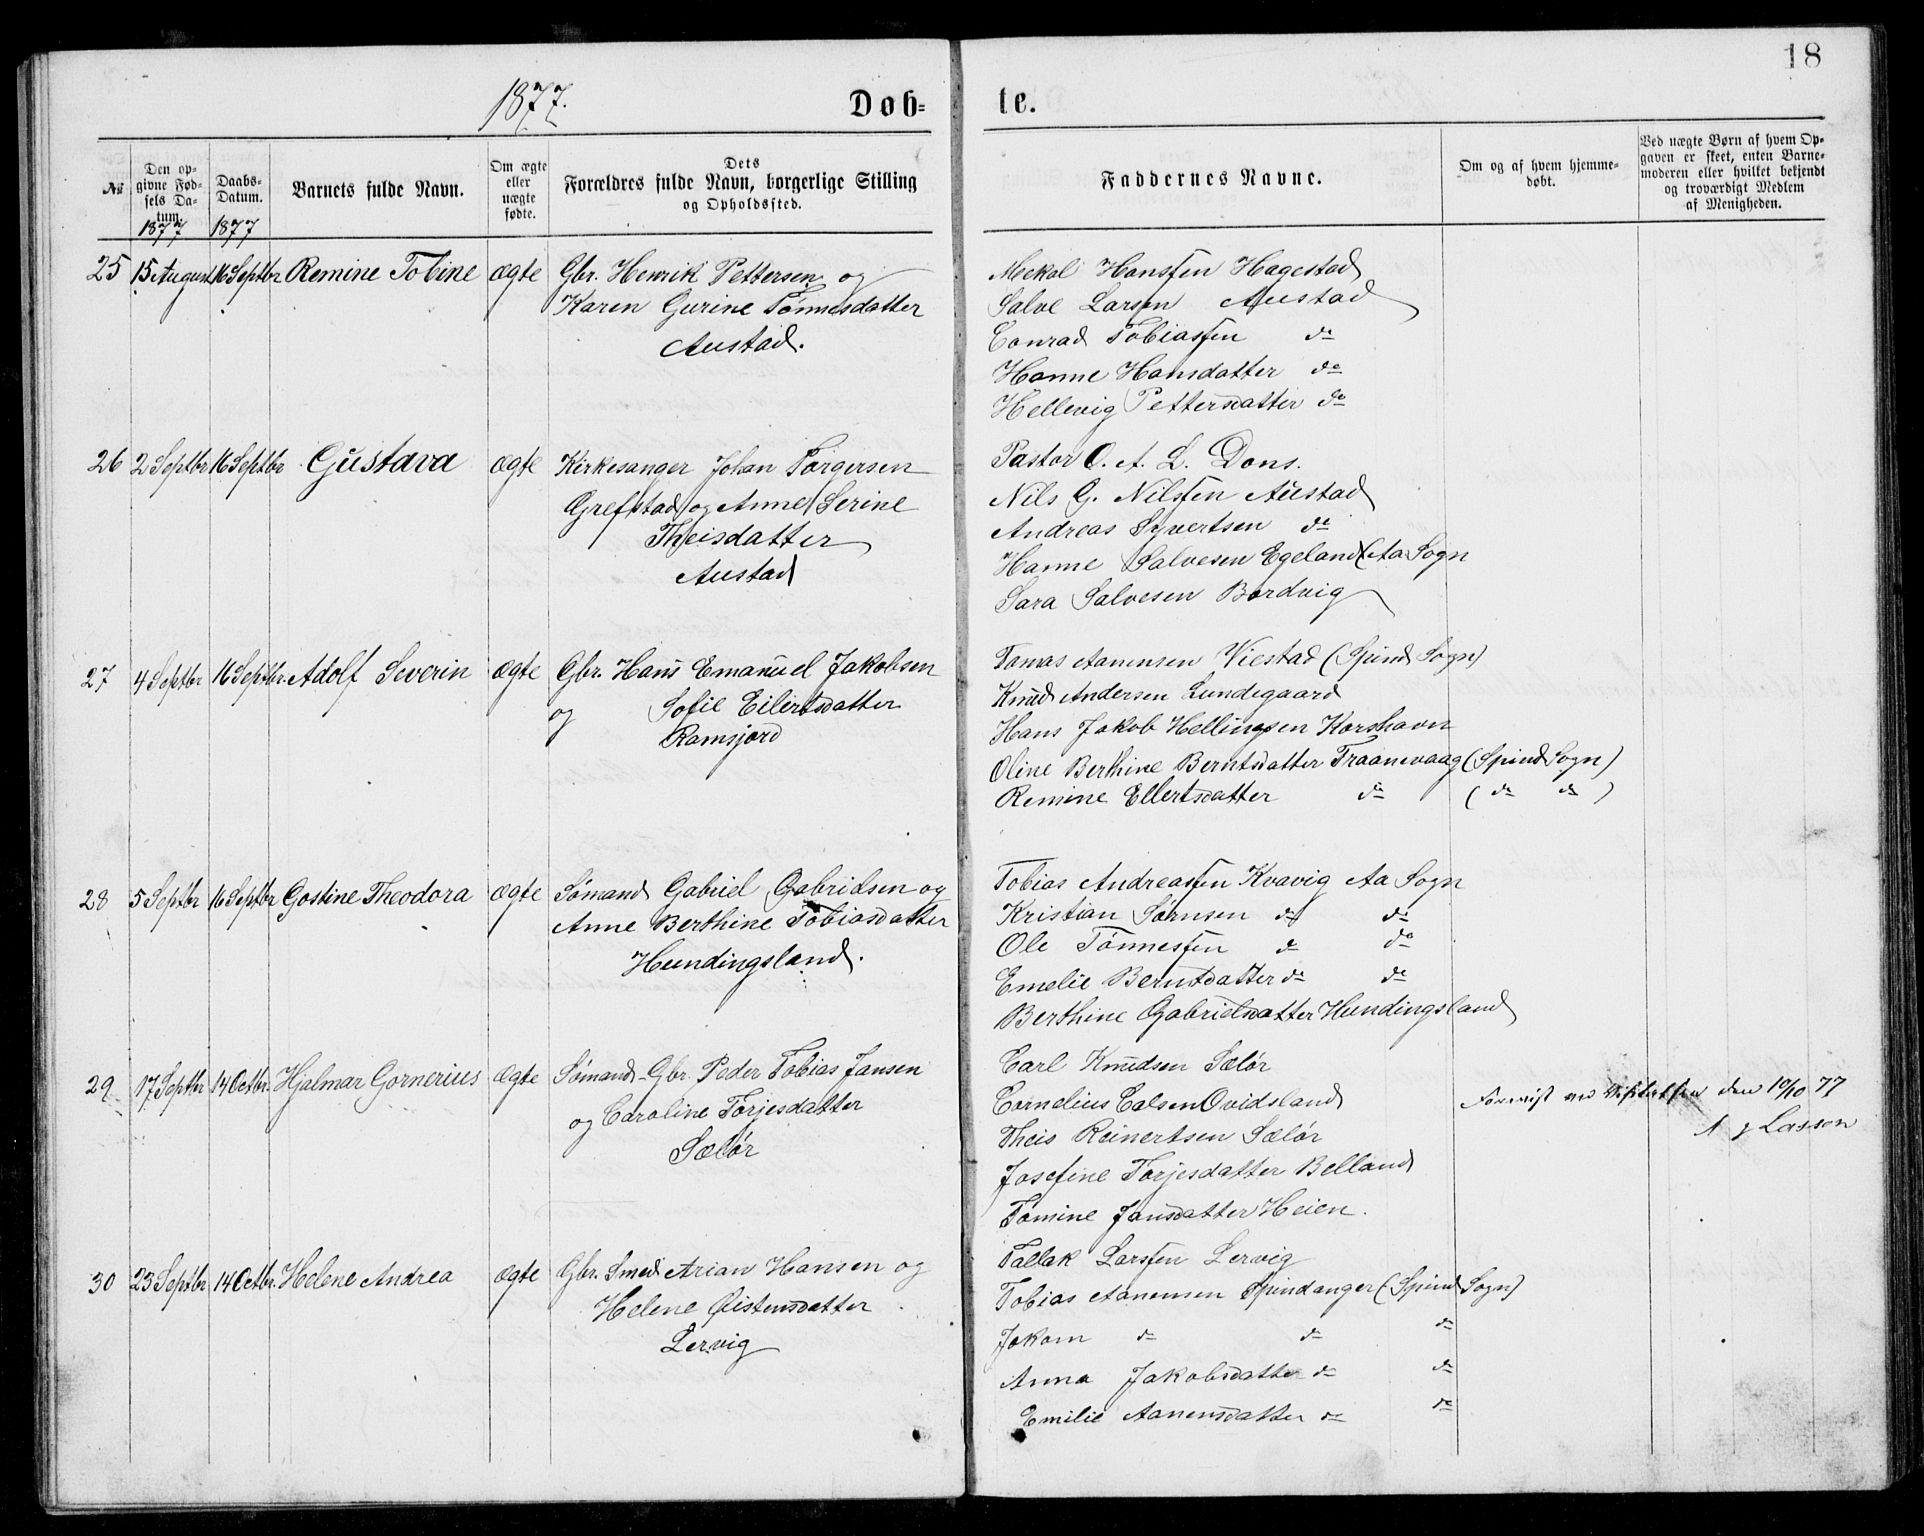 18
1877.
Döb-
te.
№
Den opgivne Fødsels Datum.
1877
Daabs-Datum.
1877
Barnets fulde Navn.
Om ægte eller uægte fødte.
Dets Forældres fulde Navn, borgerlige Stilling og Opholdssted.
Faddernes Navne.
Om og af hvem hjemmedøbt.
Ved uægte Børn af hvem Opgaven er skeet, enten Barnemoderen eller hvilket bekjendt og troværdigt Medlem af Menigheden.
25 15 August 16 Septbr Remine Tobine ægte Gbr. Henrik Pettersen og
Karen Gurine Tönnesdatter
Austad.
Mekal Hanssen Hagestad
Salve Larsen Austad
Conrad Tobiassen do
Hanne Hansdatter do
Hellevig Pettersdatter do
26 2 Septbr 16 Septbr Gustava ægte Kirkesanger Johan Torgersen
Grefstad og Anne Serine
Theisdatter
Austad
Pastor O. A. L. Dons.
Nils G. Nilssen Austad
Andreas Syvertsen do
Hanne Salvesen Egeland (Aa Sogn
Sara Salvesen Bordvig
27 4 Septbr 16 Septbr. Adolf Severin ægte Gbr. Hans Emanuel Jakobsen
og Sofie Eilertsdatter
Ramsjord
Tomas Aanensen Viestad (Spind Sogn)
Knud Andersen Lundegaard
Hans Jakob Hellingsen Korshavn
Oline Berthine Berntsdatter Traanevaag (Spind Sogn)
Remine Ellertsdatter do (do do)
28 5 Septbr 16 Septbr Gostine Theodora ægte Sömand Gabriel Gabrielsen og
Anne Berthine Tobiasdatter
Hundingsland.
Tobias Andreassen Kvavig Aa Sogn
Kristian Sörnsen do do
Ole Tönnessen do do
Emelie Berntsdatter do do
Berthine Gabrielsdatter Hundingsland
29 17 Septbr 14 Octbr. Hjalmar Gornerius ægte Sömand-Gbr. Peder Tobias Jansen
og Caroline Torjesdatter
Sælör
Carl Knudsen Sælör
Cornelius Calsen Ovidsland
Theis Reinertsen Sælör
Josefine Torjesdatter Belland
Tomine Jansdatter Heien.
Forevist ved Visitatsen den 10/10 77
Lasson
30 23 Septbr 14 Octbr. Helene Andrea ægte Gbr. Smed Arian Hansen og
Helene Öistensdatter
Lervig
Tallak Larssen Lervig
Tobias Aanensen Spindanger (Spind Sogn)
Jokom do do do
Anna Jakobsdatter do do
Emilie Aanensdatter do do